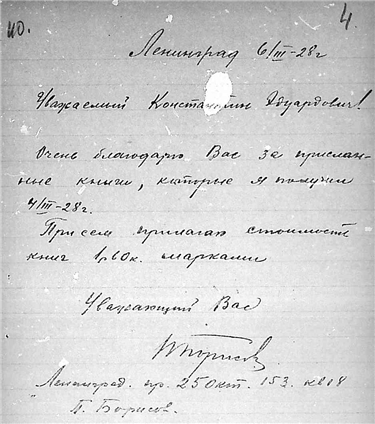 4.
Ленинград 6/III-28г
Уважаемый Константин Эдуардович!
Очень благодарю Вас за прислан-
ные книги, которые я получил
4/III-28г.
При сем прилагаю стоимость
книг 1р60к. марками
Уважающий Вас
ПБорисов
Ленинград. пр. 25 Окт. 153. кв
П. Борисов.